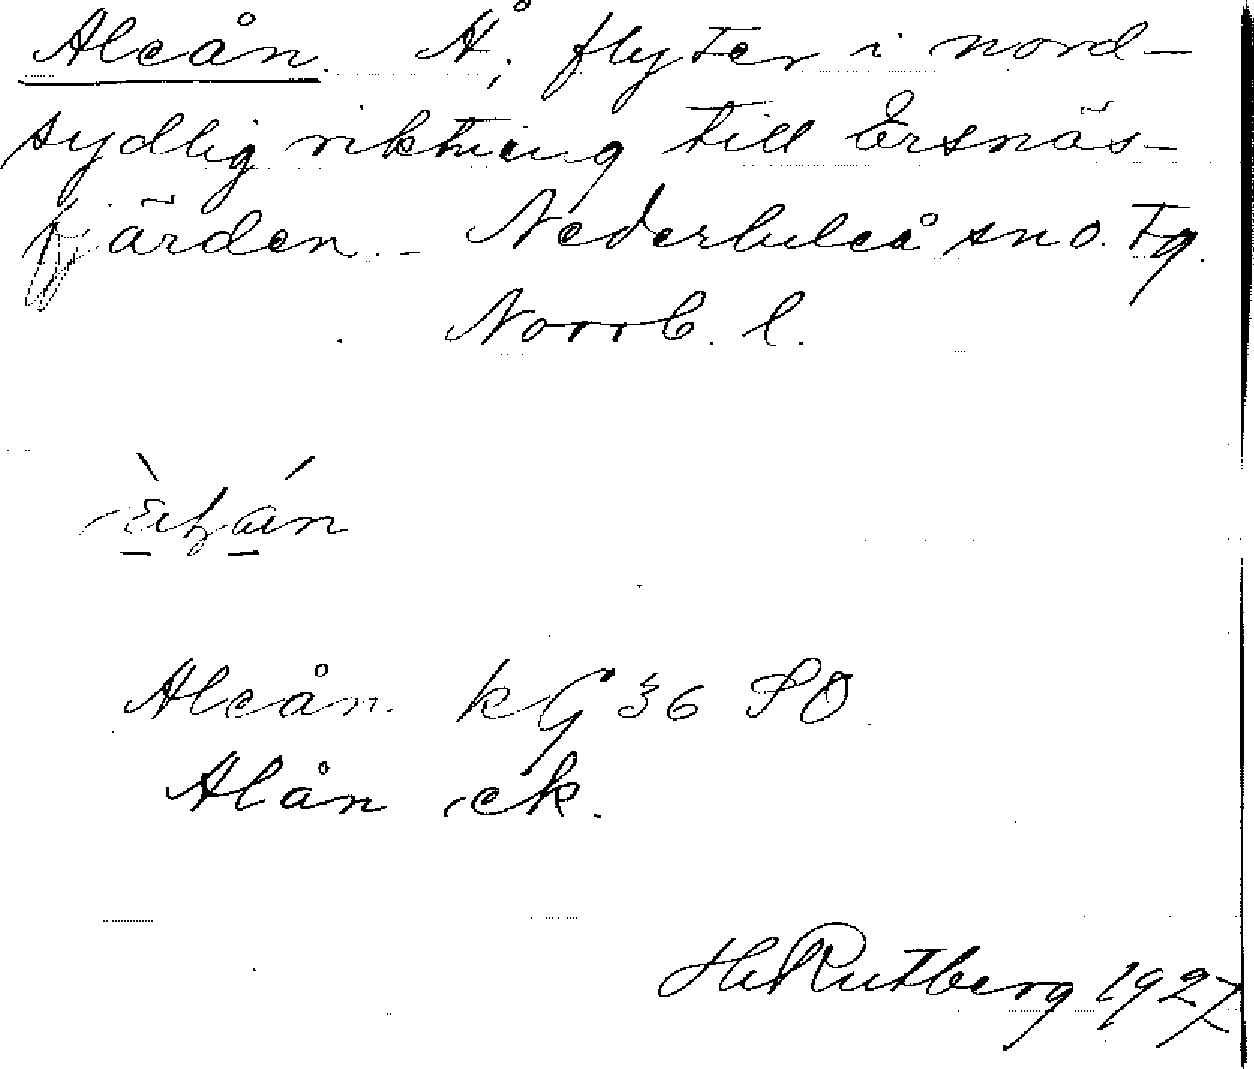 Aleån. Å, flyter i nord-
sydlig riktning till Ersnäs-
fjärden. - Nederluleå sn o. tg.
Norrb. l.
Aleån kG 36 SO
Alån ek.
H. Rutberg 1927